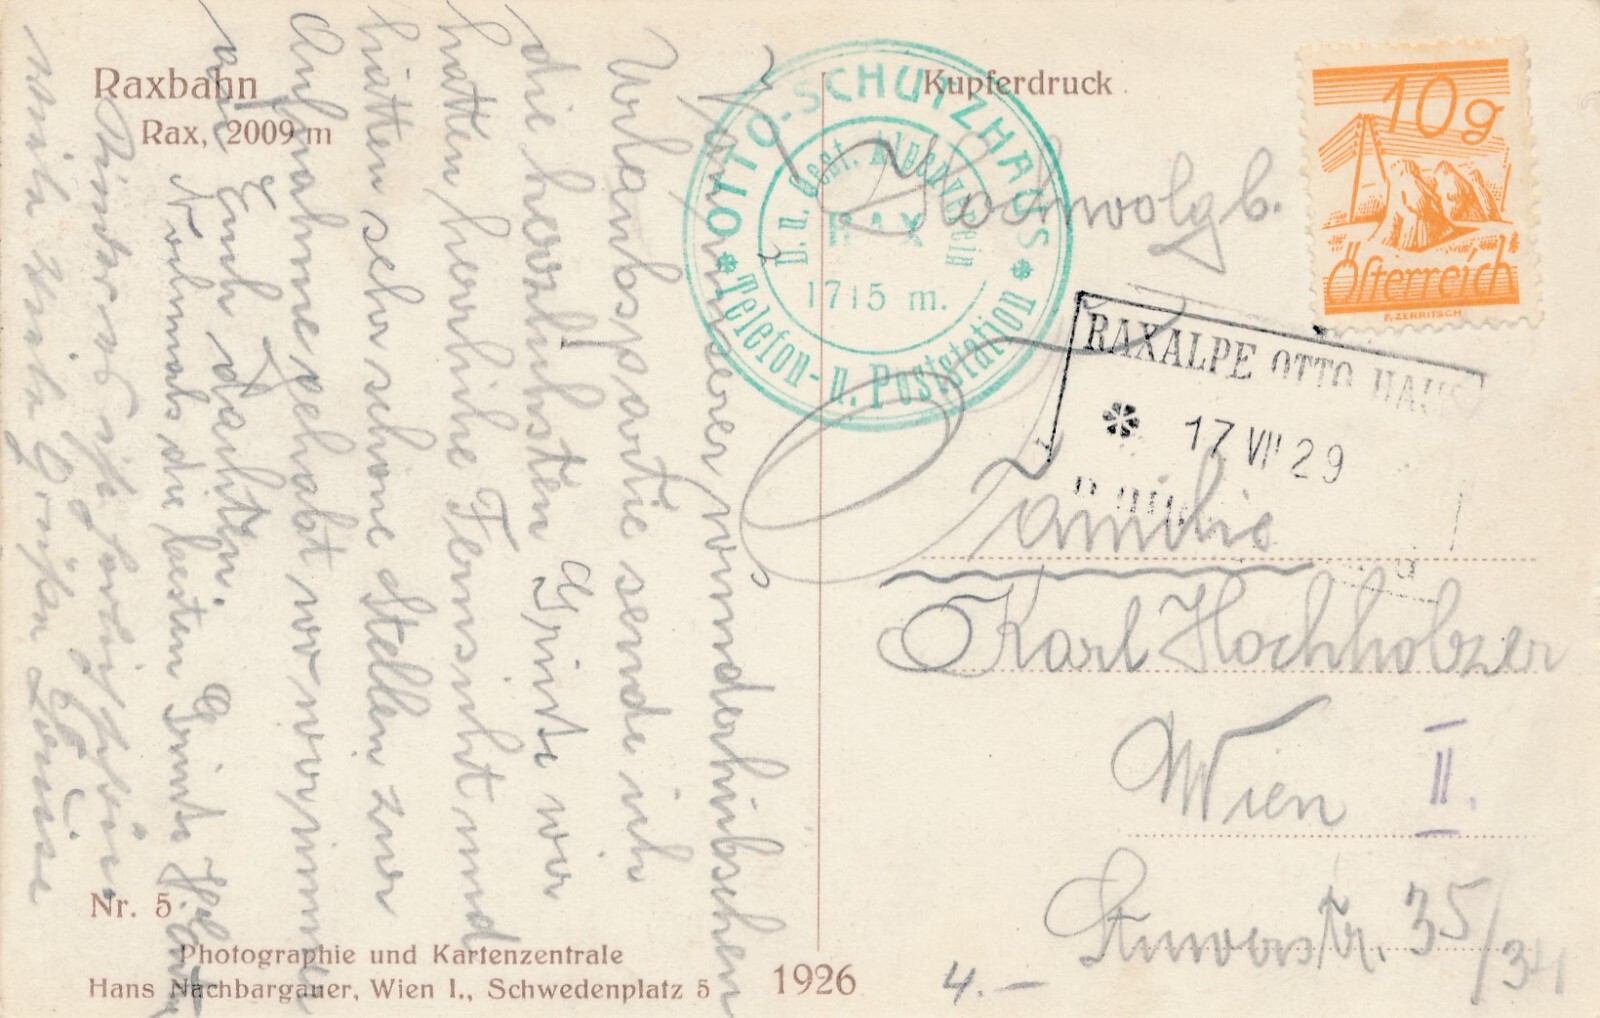 Raxbahn
Rax, 2009 m
Kupferdruck
OTTO-SCHUTZHAUS
D. u. Oest. Alpenverein
RAX
1715 m.
* Telefon- u. Poststation *
10g
Österreich
F. ZERRITSCH
RAXALPE OTTO HAUS
* 17 VII 29
Hochwolgb.
Familie
Karl Hochholzer
Wien II.
Stuwerstr. 35/34
4.–
Von unserer wunderhübschen
Urlaubspartie sende ich
die herzlichsten Grüße wir
hatten herrliche Fernsicht und
hätten sehr schöne Stellen zur
Aufnahme gehabt wo wir immer
an Euch dachten.
Nochmals die besten Grüße
Nr. 5
Photographie und Kartenzentrale
Hans Nachbargauer, Wien I., Schwedenplatz 5
1926